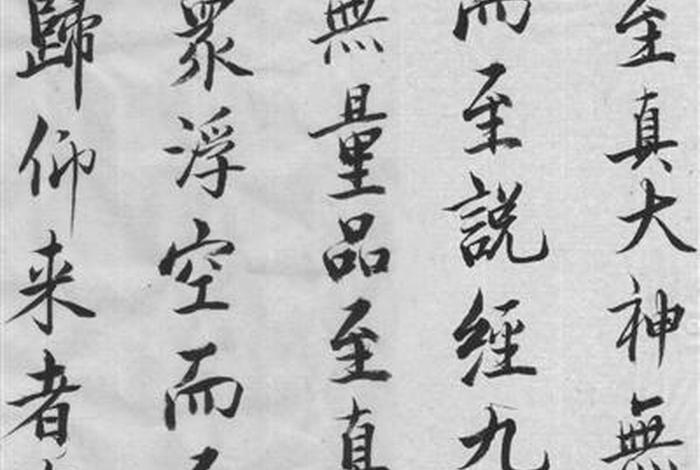 至真大神無
而至說經九
無量品至真
眾浮空而
歸仰来者